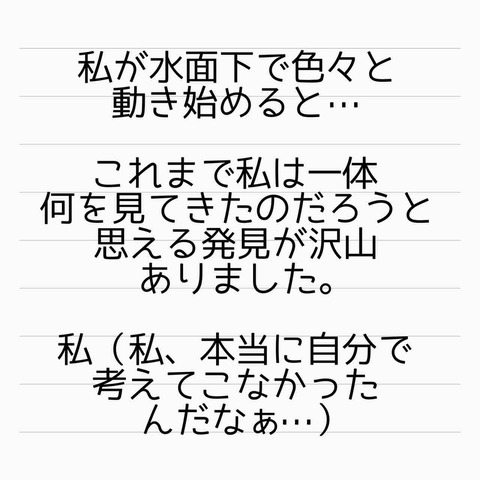 私が水面下で色々と
動き始めると…
これまで私は一体
何を見てきたのだろうと
思える発見が沢山
ありました。
私（私、本当に自分で
考えてこなかった
んだなぁ…）